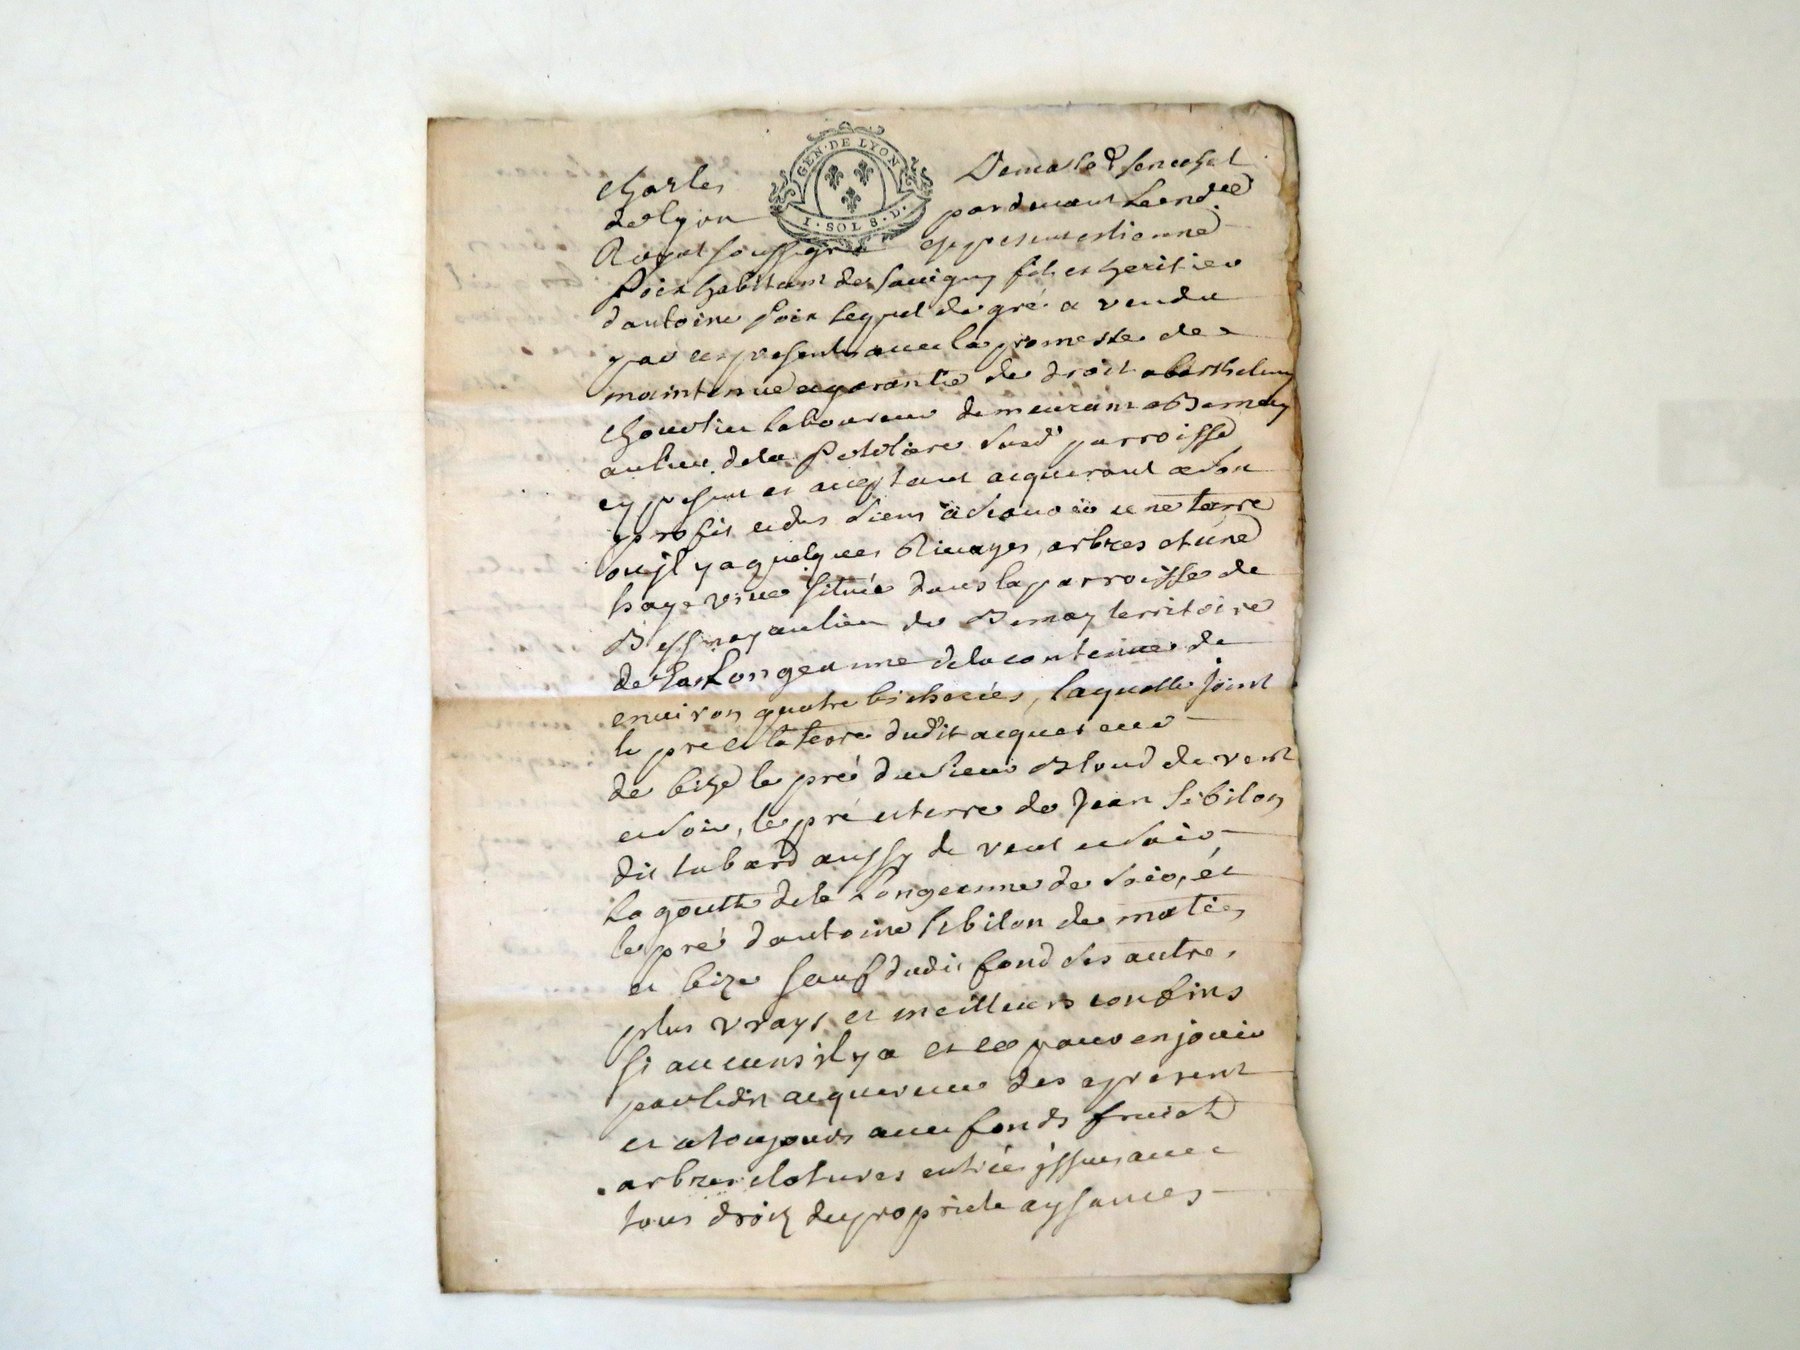 GEN·DE LYON
I·SOL S·D·
Charles Demasso Senechal
de Lyon pardevant le nore
Royal soussigné est present estienne
Poix habitant de Savigny fils et heritier
dantoine Poix lequel de gré a vendu
par ces presentes avec la promesse de
maintenue et garantie de droit a barthelemy
laboureur demeurant a Bernay
au lieu de la susd parroisse
cy present et aceptant acquereur a son
profit et des siens a scavoir une terre
ou jl y a quelques Rivages, arbres et une
haye vive située dans la parroisse de
Bessenay au lieu de Bernay territoire
de La Longeanne de la contenue de
environ quatre bicherées, laquelle joint
le pré et la terre dudit acquereur
de bize le pré du sieur Blond de vent
et soir, le pré et terre de Jean Sibilon
dit tabard aussy de vent et soir
La goutte de la Longeanne de soir, et
le pré dantoine Sibilon de matin
et bize sauf dudit fond ses autres
plus vrays et meilleurs confins
si aucuns jl y a et ce pour en jouir
par ledit acquereur des apresent
et a toujours avec fonds fruict
arbres clotures entrées jssues avec
tous droits de propriete aysances